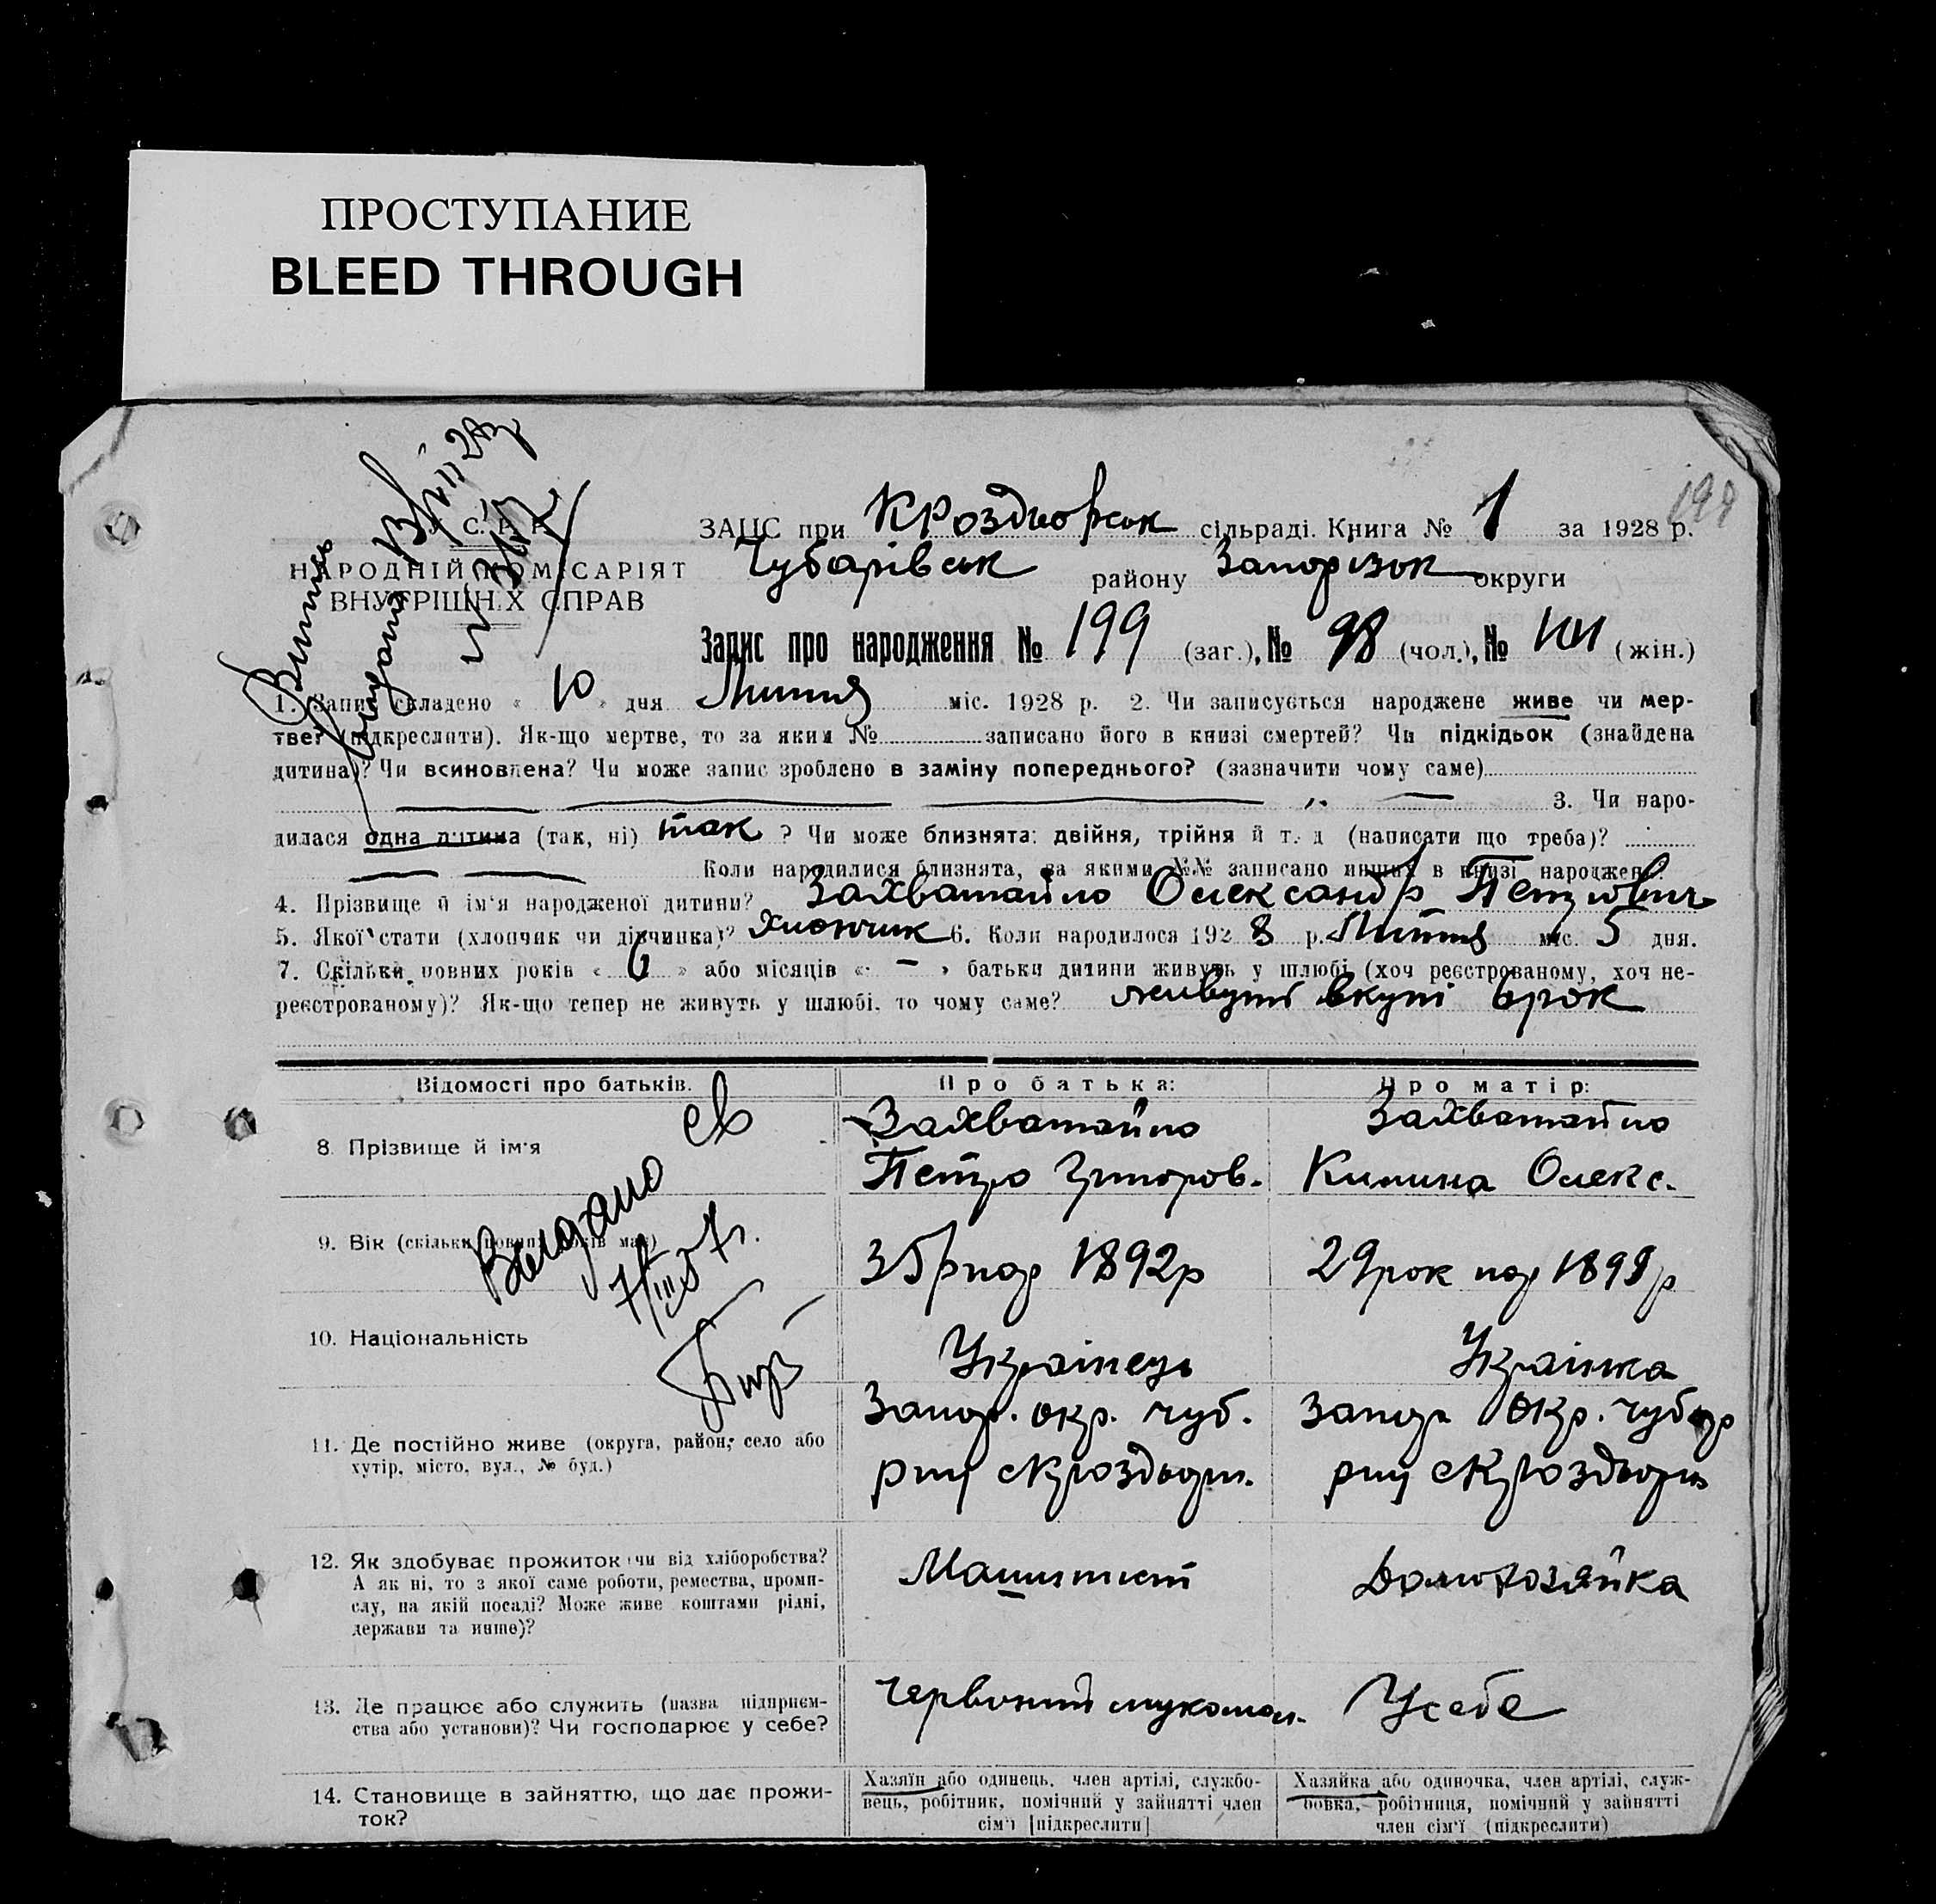 ПРОСТУПАНИЕ
BLEED THROUGH
199
С. Р. Р.
НАРОДНІЙ КОМІСАРІЯТ
ВНУТРІШНІХ СПРАВ
ЗАЦС при Кроздворськ сільраді. Книга № 1 за 1928 р.
Чубарівськ району Запорізок округи
Запис про народження № 199 (заг.), № 98 (чол.), № 101 (жін.)
1. Запис складено « 10 » дня Липня міс. 1928 р. 2. Чи записується народжене живе чи мер-
тве? (підкреслити). Як-що мертве, то за яким № записано його в книзі смертей? Чи підкідьок (знайдена
дитина)? Чи всиновлена? Чи може запис зроблено в заміну попереднього? (зазначити чому саме)
3. Чи наро-
дилася одна дитина (так, ні) так ? Чи може близнята: двійня, трійня й т. д (написати що треба)?
Коли народилися близнята, за якими №№ записано инших в книзі народжень?
4. Прізвище й ім'я народженої дитини? Захватайло Олександр Петрович
5. Якої стати (хлопчик чи дівчинка)? Хлопчик 6. Коли народилося 1928 р. Липня міс. 5 дня.
7. Скільки повних років « 6 » або місяців « - » батьки дитини живуть у шлюбі (хоч реєстрованому, хоч не-
реєстрованому)? Як-що тепер не живуть у шлюбі, то чому саме? живуть вкупі 6 рок
Відомості про батьків. Про батька: Про матір:
8. Прізвище й ім'я Захватайло Захватайло
Петро Григоров. Килина Олекс.
Видано
7/III 57 г.
9. Вік (скільки повних років має) 35 р нар 1892р 29 рок нар 1899 р
10. Національність Українець Українка
11. Де постійно живе (округа, район, село або
хутір, місто, вул., № буд.)
Запор. окр. чуб. Запор окр. чубар
рну с Кроздворі. рну с Кроздворі
12. Як здобуває прожиток чи від хліборобства?
А як ні, то з якої саме роботи, ремества, проми-
слу, на якій посаді? Може живе коштами рідні,
держави та инше)?
Машинист Домохозяйка
13. Де працює або служить (назва підприєм-
ства або установи)? Чи господарює у себе?
Червоний мукомол. Усебе
14. Становище в зайняттю, що дає прожи-
ток?
Хазяїн або одинець, член артілі, службо-
вець, робітник, помічний у зайнятті член
сім'ї [підкреслити]
Хазяйка або одиночка, член артілі, служ-
бовка, робітниця, помічний у зайнятті
член сім'ї (підкреслити)